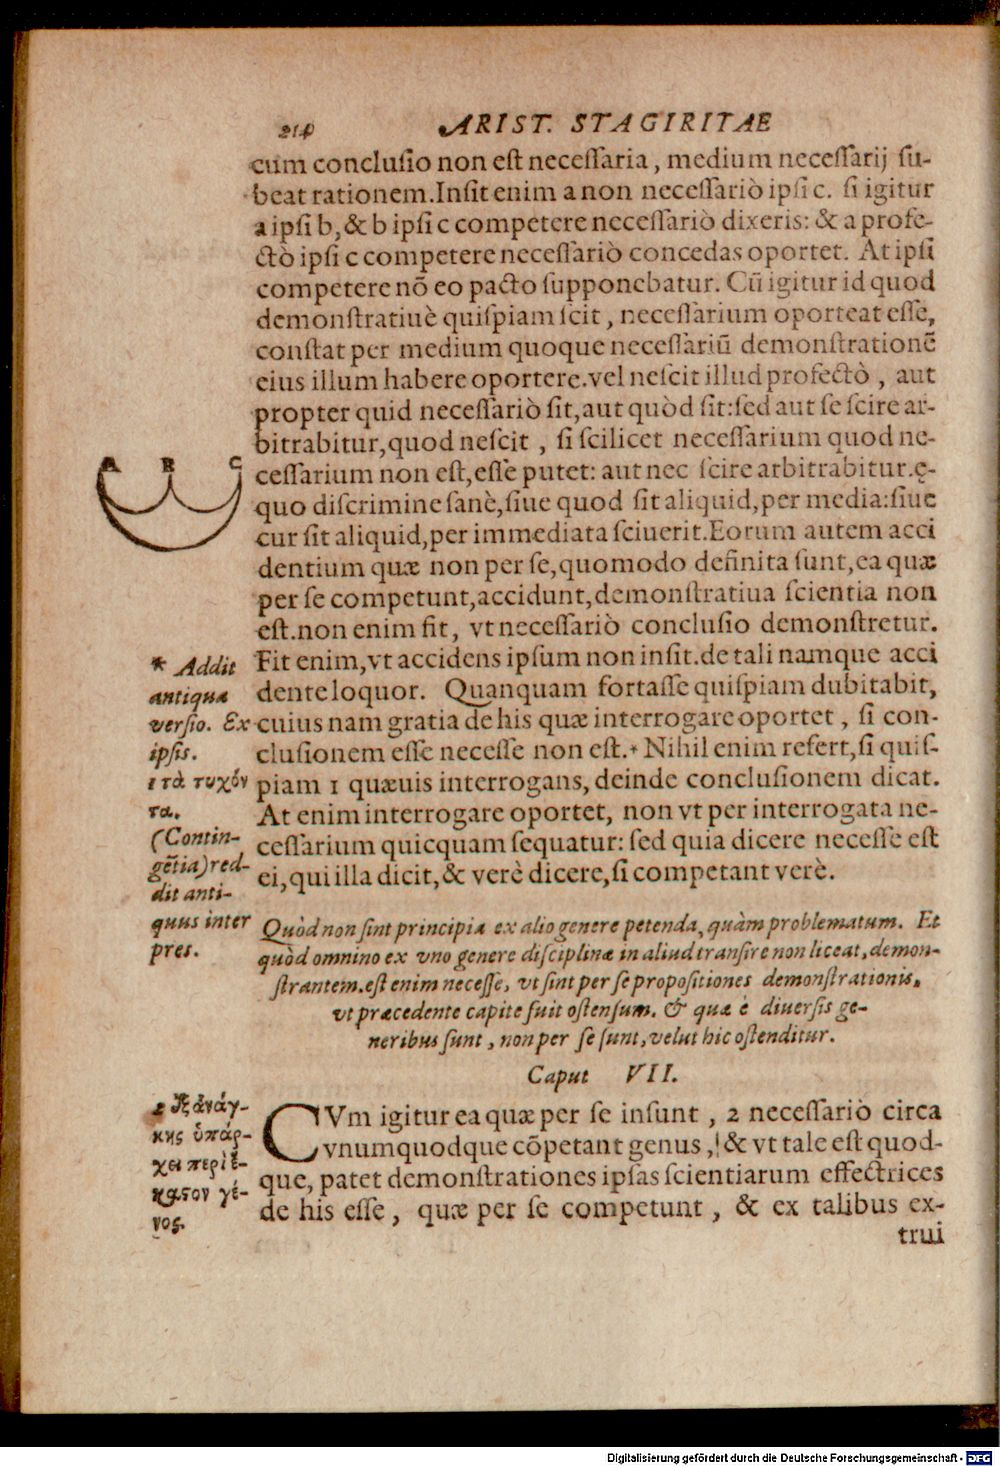 214 ARIST. STAGIRITAE
cum conclusio non est necessaria, medium necessarij su-
beat rationem. Insit enim a non necessariò ipsi c. si igitur
a ipsi b, & b ipsi c competere necessariò dixeris: & a profe-
ctò ipsi c competere necessariò concedas oportet. At ipsi
competere nõ eo pacto supponebatur. Cũ igitur id quod
demonstratiuè quispiam scit, necessarium oporteat esse,
constat per medium quoque necessariũ demonstrationẽ
eius illum habere oportere. vel nescit illud profectò, aut
propter quid necessariò sit, aut quòd sit: sed aut se scire ar-
bitrabitur, quod nescit, si scilicet necessarium quod ne-
cessarium non est, esse putet: aut nec scire arbitrabitur. ę-
quo discrimine sanè, siue quod sit aliquid, per media: siue
cur sit aliquid, per immediata sciuerit. Eorum autem acci
dentium quæ non per se, quomodo definita sunt, ea quæ
per se competunt, accidunt, demonstratiua scientia non
est. non enim fit, vt necessariò conclusio demonstretur.
Fit enim, vt accidens ipsum non insit. de tali namque acci
dente loquor. Quanquam fortasse quispiam dubitabit,
cuius nam gratia de his quæ interrogare oportet, si con-
clusionem esse necesse non est.* Nihil enim refert, si quis-
piam 1 quæuis interrogans, deinde conclusionem dicat.
At enim interrogare oportet, non vt per interrogata ne-
cessarium quicquam sequatur: sed quia dicere necesse est
ei, qui illa dicit, & verè dicere, si competant verè.
A B C
* Addit
antiqua
versio. Ex
ipsis.
1 τὰ τυχόν
τα.
(Contin-
gẽtia) red-
dit anti-
quus inter
pres.
Quòd non sint principia ex alio genere petenda, quàm problematum. Et
quòd omnino ex vno genere disciplinæ in aliud transire non liceat, demon-
strantem. est enim necesse, vt sint per se propositiones demonstrationis,
vt præcedente capite fuit ostensum. & quæ è diuersis ge-
neribus sunt, non per se sunt, velut hic ostenditur.
Caput VII.
CVm igitur ea quæ per se insunt, 2 necessariò circa
vnumquodque cõpetant genus, & vt tale est quod-
que, patet demonstrationes ipsas scientiarum effectrices
de his esse, quæ per se competunt, & ex talibus ex-
trui
2 ἐξ ἀνάγ-
κης ὑπάρ-
χει περὶ ἕ-
καστον γέ-
νος.
Digitalisierung gefördert durch die Deutsche Forschungsgemeinschaft - DFG